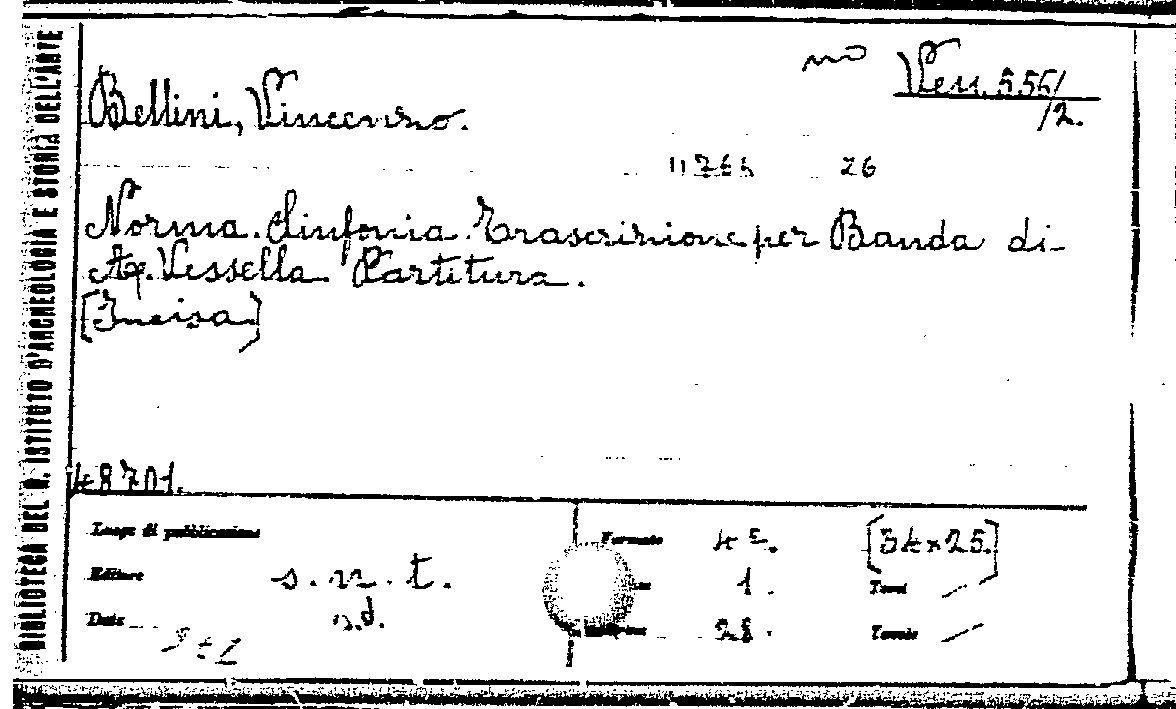 BIBLIOTECA DEL R. ISTITUTO D'ARCHEOLOGIA E STORIA DELL'ARTE
mo Ven. 556/
/2.
Bellini, Vincenzo.
11766 26
Norma. Sinfonia. Trascrizione per Banda di
A. Vessella. Partitura.
[Incisa]
48701.
Luogo di pubblicazione
Formato 4º. [34×25.]
Editore s. n. t.
1. Tomi /
Data s.d.
28. Tavole /